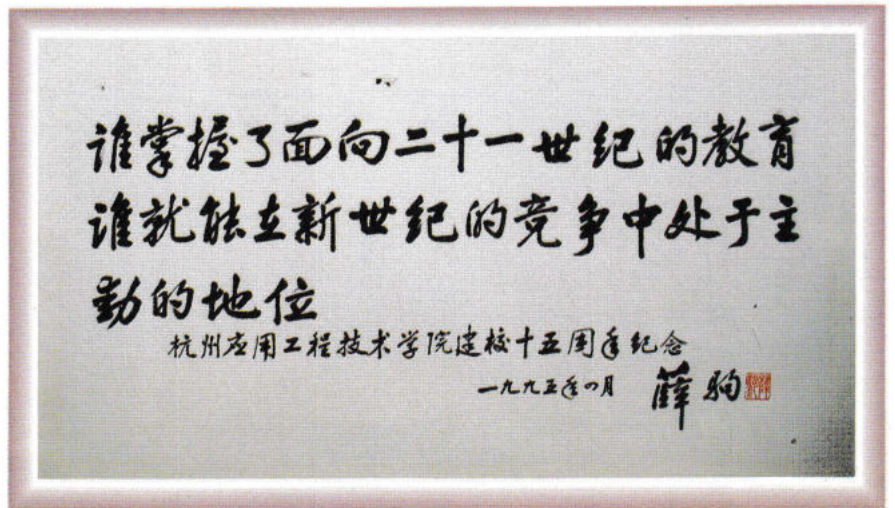 谁掌握了面向二十一世纪的教育
谁就能在新世纪的竞争中处于主
动的地位
杭州应用工程技术学院建校十五周年纪念
一九九五年四月 薛驹